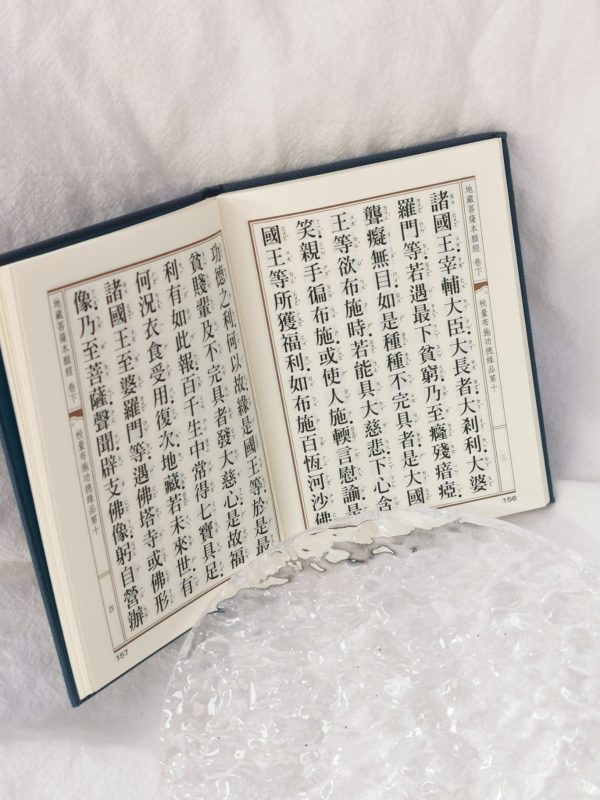 地藏菩薩本願經 卷下 校量布施功德緣品第十 三
諸國王．宰輔大臣．大長者．大剎利．大婆
羅門等．若遇最下貧窮．乃至癃殘瘖瘂．
聾癡無目．如是種種不完具者．是大國
王等欲布施時．若能具大慈悲．下心含
笑．親手徧布施．或使人施．輭言慰諭．是
國王等所獲福利．如布施百恆河沙佛
156
功德之利．何以故．緣是國王等．於是最
貧賤輩及不完具者．發大慈心．是故福
利有如此報．百千生中．常得七寶具足．
何況衣食受用．復次地藏．若未來世．有
諸國王．至婆羅門等．遇佛塔寺．或佛形
像．乃至菩薩聲聞辟支佛像．躬自營辦．
地藏菩薩本願經 卷下 校量布施功德緣品第十 四
157